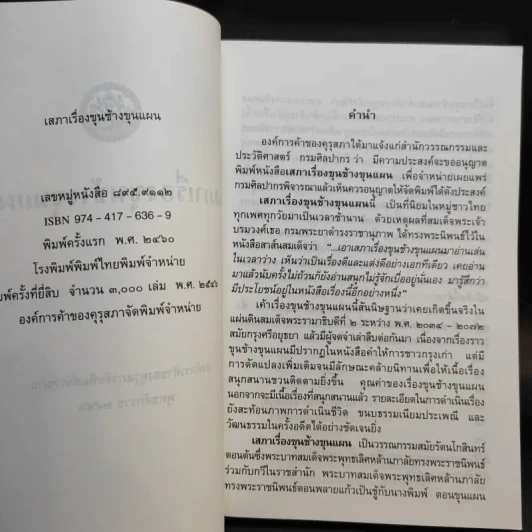 เสภาเรื่องขุนช้างขุนแผน
เลขหมู่หนังสือ ๘๙๕.๙๑๑๒
ISBN 974 - 417 - 636 - 9
พิมพ์ครั้งแรก พ.ศ. ๒๔๖๐
โรงพิมพ์พิมพ์ไทยพิมพ์จำหน่าย
พิมพ์ครั้งที่ยี่สิบ จำนวน ๓,๐๐๐ เล่ม พ.ศ.
องค์การค้าของคุรุสภาจัดพิมพ์จำหน่าย
คำนำ
องค์การค้าของคุรุสภาได้มาแจ้งแก่สำนักวรรณกรรมและ
ประวัติศาสตร์ กรมศิลปากร ว่า มีความประสงค์จะขออนุญาต
พิมพ์หนังสือเสภาเรื่องขุนช้างขุนแผน เพื่อจำหน่ายเผยแพร่
กรมศิลปากรพิจารณาแล้วเห็นควรอนุญาตให้จัดพิมพ์ได้ดังประสงค์
เสภาเรื่องขุนช้างขุนแผนนี้ เป็นที่นิยมในหมู่ชาวไทย
ทุกเพศทุกวัยมาเป็นเวลาช้านาน ด้วยเหตุผลที่สมเด็จพระเจ้า
บรมวงศ์เธอ กรมพระยาดำรงราชานุภาพ ได้ทรงพระนิพนธ์ไว้ใน
หนังสือสาส์นสมเด็จว่า “...เอาเสภาเรื่องขุนช้างขุนแผนมาอ่านเล่น
ในเวลาว่าง เห็นว่าเป็นเรื่องดีและแต่งดีอย่างเอกทีเดียว เคยอ่าน
มาแล้วนับครั้งไม่ถ้วนก็ยังอ่านสนุกไม่รู้จักเบื่ออยู่นั่นเอง มารู้สึกว่า
มีประโยชน์อยู่ในหนังสือเรื่องนี้อีกอย่างหนึ่ง”
เค้าเรื่องขุนช้างขุนแผนนี้สันนิษฐานว่าเคยเกิดขึ้นจริงใน
แผ่นดินสมเด็จพระรามาธิบดีที่ ๒ ระหว่าง พ.ศ. ๒๐๓๔ - ๒๐๗๒
สมัยกรุงศรีอยุธยา แล้วมีผู้จดจำเล่าสืบต่อกันมา เนื่องจากเรื่องราว
ขุนช้างขุนแผนมีปรากฏในหนังสือคำให้การชาวกรุงเก่า แต่มี
การดัดแปลงเพิ่มเติมจนมีลักษณะคล้ายนิทานเพื่อให้เนื้อเรื่อง
สนุกสนานชวนติดตามยิ่งขึ้น คุณค่าของเรื่องขุนช้างขุนแผน
นอกจากจะมีเนื้อเรื่องที่สนุกสนานแล้ว รายละเอียดในการดำเนินเรื่อง
ยังสะท้อนภาพการดำเนินชีวิต ขนบธรรมเนียมประเพณี และ
วัฒนธรรมในครั้งอดีตได้อย่างชัดเจนยิ่ง
เสภาเรื่องขุนช้างขุนแผน เป็นวรรณกรรมสมัยรัตนโกสินทร์
ตอนต้นซึ่งพระบาทสมเด็จพระพุทธเลิศหล้านภาลัยทรงพระราชนิพนธ์
ร่วมกับกวีในราชสำนัก พระบาทสมเด็จพระพุทธเลิศหล้านภาลัย
ทรงพระราชนิพนธ์ตอนพลายแก้วเป็นชู้กับนางพิมพ์ ตอนขุนแผน